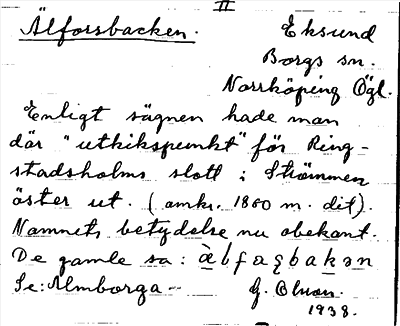 II
Älforsbacken. Eksund
Borgs sn.
Norrköping Ögl.
Enligt sägnen hade man
där "utkikspunkt" för Ring-
stadsholms slott i Strömmen
öster ut. (omkr. 1800 m. dit).
Namnets betydelse nu obekant.
De gamle sa:
Se: Älmborga-- G.
1938.